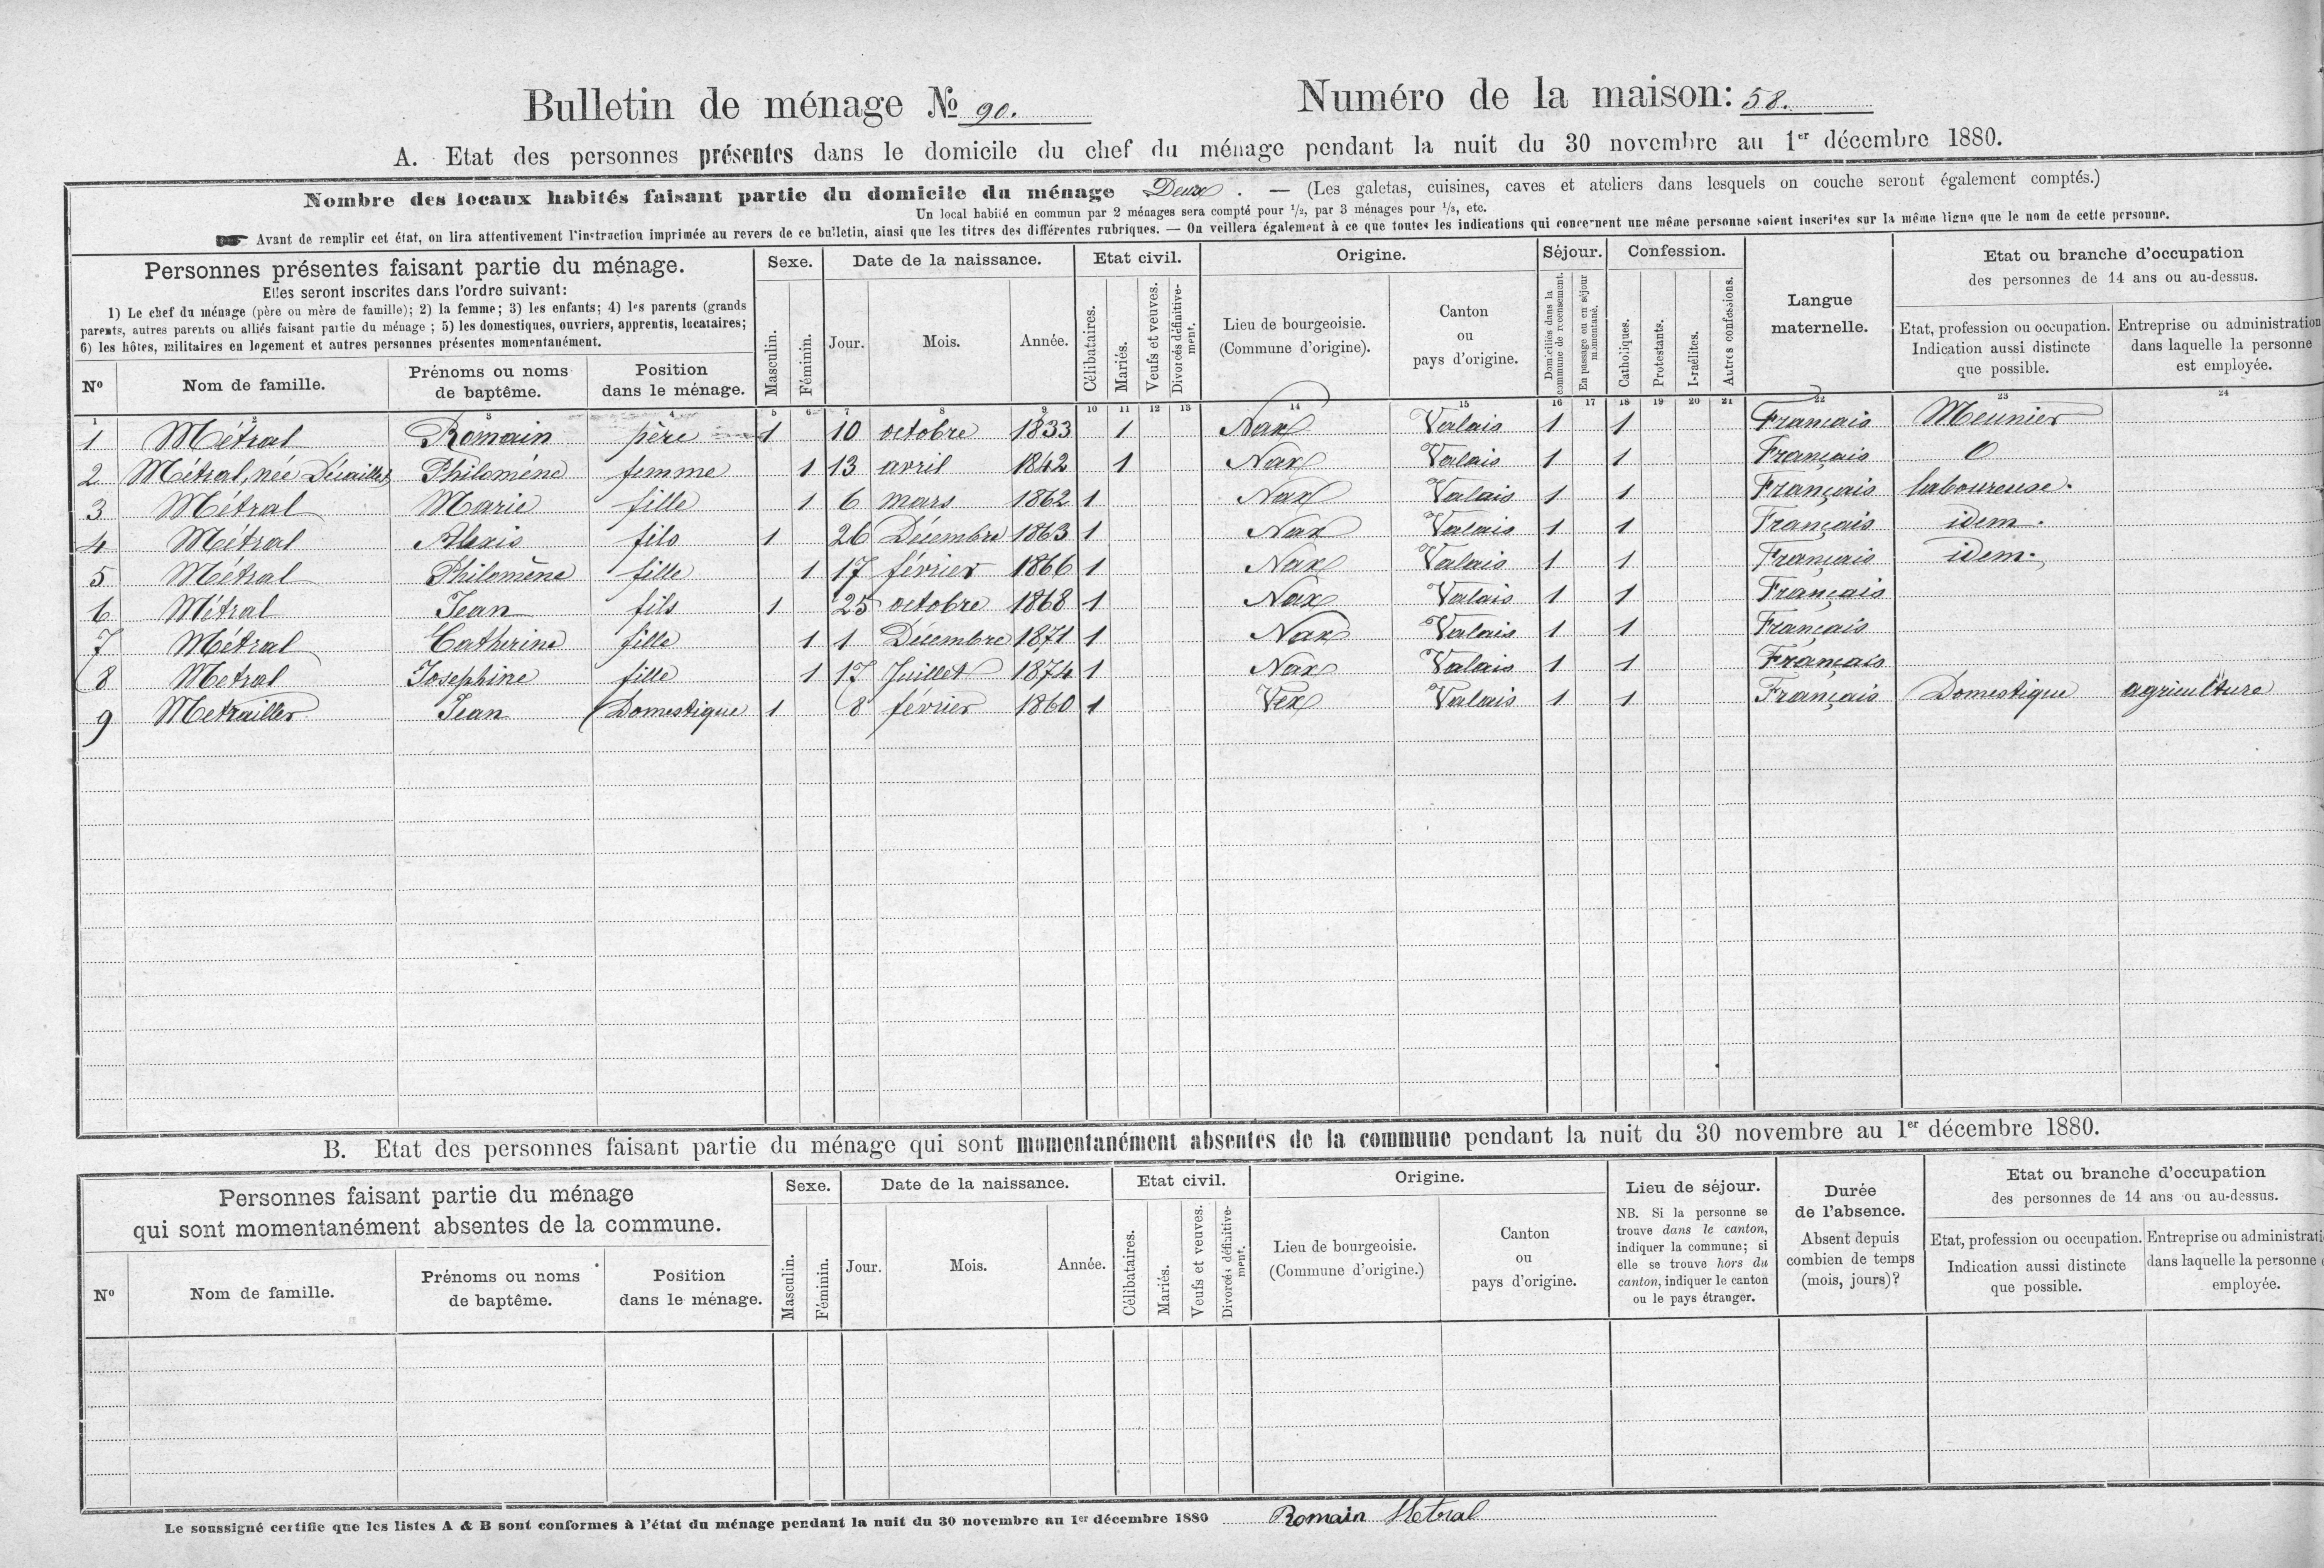 Bulletin de ménage № 90.
Numéro de la maison: 58.
A. Etat des personnes présentes dans le domicile du chef du ménage pendant la nuit du 30 novembre au 1er décembre 1880.
Nombre des locaux habités faisant partie du domicile du ménage Deux. — (Les galetas, cuisines, caves et ateliers dans lesquels on couche seront également comptés.)
Un local habité en commun par 2 ménages sera compté pour 1/2, par 3 ménages pour 1/3, etc.
Avant de remplir cet état, on lira attentivement l'instruction imprimée au revers de ce bulletin, ainsi que les titres des différentes rubriques. — On veillera également à ce que toutes les indications qui concernent une même personne soient inscrites sur la même ligne que le nom de cette personne.
Personnes présentes faisant partie du ménage.
Elles seront inscrites dans l'ordre suivant:
1) Le chef du ménage (père ou mère de famille); 2) la femme; 3) les enfants; 4) les parents (grands
parents, autres parents ou alliés faisant partie du ménage; 5) les domestiques, ouvriers, apprentis, locataires;
6) les hôtes, militaires en logement et autres personnes présentes momentanément.
Nº
Nom de famille.
Prénoms ou noms
de baptême.
Position
dans le ménage.
Sexe.
Masculin.
Féminin.
Date de la naissance.
Jour.
Mois.
Année.
Etat civil.
Célibataires.
Mariés.
Veufs et veuves.
Divorcés définitive-
ment.
Origine.
Lieu de bourgeoisie.
(Commune d'origine).
Canton
ou
pays d'origine.
Séjour.
Domiciliés dans la
commune de recensement.
En passage ou en séjour
momentané.
Confession.
Catholiques.
Protestants.
Israélites.
Autres confessions.
Langue
maternelle.
Etat ou branche d'occupation
des personnes de 14 ans ou au-dessus.
Etat, profession ou occupation.
Indication aussi distincte
que possible.
Entreprise ou administration
dans laquelle la personne
est employée.
1 2 3 4 5 6 7 8 9 10 11 12 13 14 15 16 17 18 19 20 21 22 23 24
1 Métral Romain père 1 10 octobre 1833 1 Nax Valais 1 1 Français Meunier
2 Métral, née Philomène femme 1 13 avril 1842 1 Nax Valais 1 1 Français 0
3 Métral Marie fille 1 6 mars 1862 1 Nax Valais 1 1 Français laboureuse.
4 Métral Alexis fils 1 26 Décembre 1863 1 Nax Valais 1 1 Français idem.
5 Métral Philomène fille 1 17 février 1866 1 Nax Valais 1 1 Français idem.
6 Métral Jean fils 1 25 octobre 1868 1 Nax Valais 1 1 Français
7 Métral Catherine fille 1 1 Décembre 1871 1 Nax Valais 1 1 Français
8 Metral Josephine fille 1 17 Juillet 1874 1 Nax Valais 1 1 Français
9 Metrailler Jean Domestique 1 8 février 1860 1 Vex Valais 1 1 Français Domestique agriculture
B. Etat des personnes faisant partie du ménage qui sont momentanément absentes de la commune pendant la nuit du 30 novembre au 1er décembre 1880.
Personnes faisant partie du ménage
qui sont momentanément absentes de la commune.
Nº
Nom de famille.
Prénoms ou noms
de baptême.
Position
dans le ménage.
Sexe.
Masculin.
Féminin.
Date de la naissance.
Jour.
Mois.
Année.
Etat civil.
Célibataires.
Mariés.
Veufs et veuves.
Divorcés définitive-
ment.
Origine.
Lieu de bourgeoisie.
(Commune d'origine.)
Canton
ou
pays d'origine.
Lieu de séjour.
NB. Si la personne se
trouve dans le canton,
indiquer la commune; si
elle se trouve hors du
canton, indiquer le canton
ou le pays étranger.
Durée
de l'absence.
Absent depuis
combien de temps
(mois, jours)?
Etat ou branche d'occupation
des personnes de 14 ans ou au-dessus.
Etat, profession ou occupation.
Indication aussi distincte
que possible.
Entreprise ou administrati
dans laquelle la personne
employée.
Le soussigné certifie que les listes A & B sont conformes à l'état du ménage pendant la nuit du 30 novembre au 1er décembre 1880 Romain Metral